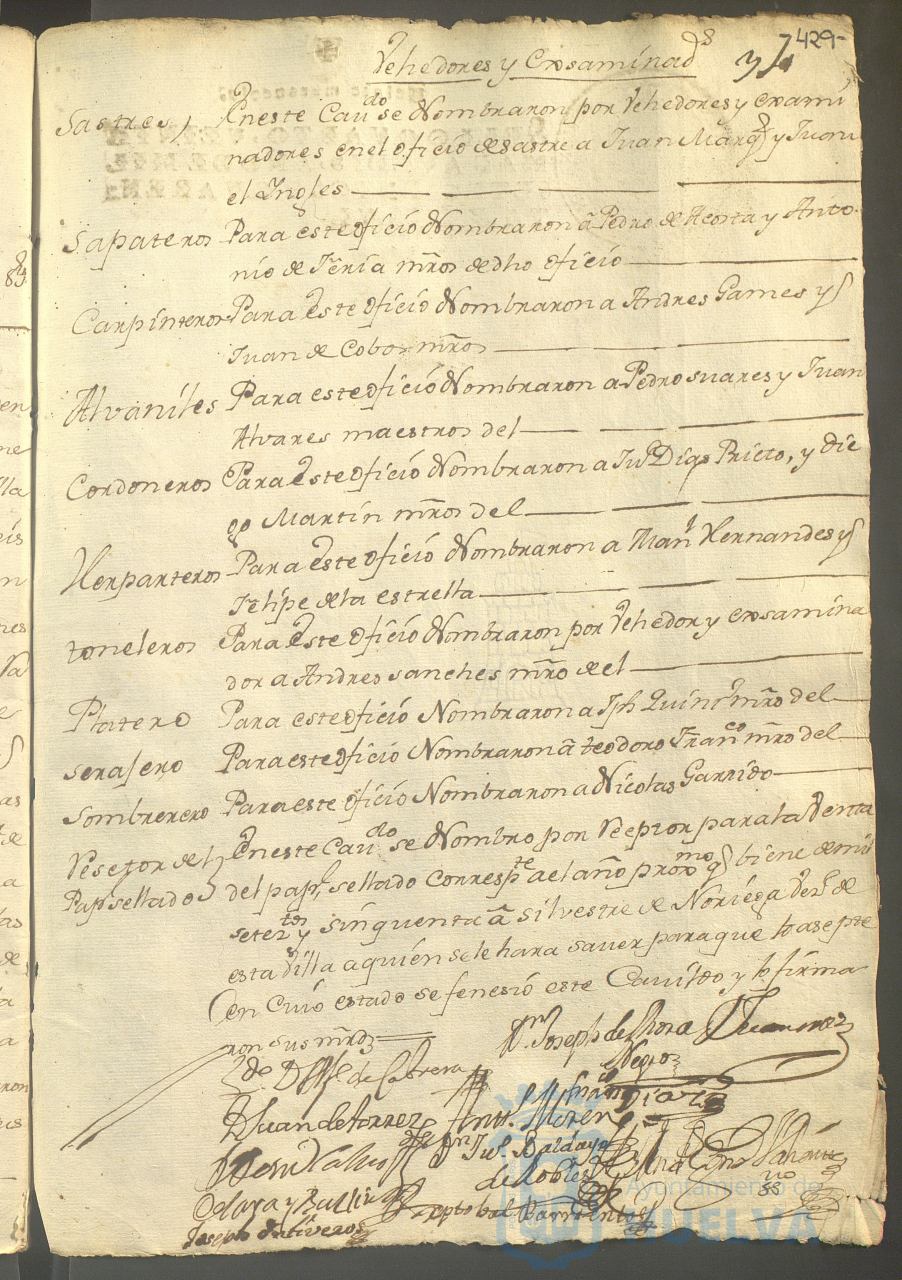 429
Vehedores y Exsaminad^s
Sastres, En este Cav^do se Nombraron por Vehedores y exami
nadores en el oficio de sastre a Juan Marq^z y Juan
el Yngles
Sapateros Para este oficio Nombraron a Pedro de Acosta y Anto
nio de Feria mros de dho oficio
Carpinteros Para este oficio Nombraron a Andres Games y
Juan de Cobos mros
Alvaniles Para este oficio Nombraron a Pedro suares y Juan
Alvares maestros del
Cordoneros Para este oficio Nombraron a Ju^o Dias Prieto, y Die
go Martin mros del
Herparteros Para este oficio Nombraron a Man^l Hernandes y
Felipe de la estrella
toneleros Para este oficio Nombraron por Vehedor y exsamina
dor a Andres sanches mro del
Platero Para este oficio Nombraron a Jph Quin mro del
serajero Para este oficio Nombraron a teodoro Fran^co mro del
Sombrerero Para este oficio Nombraron a Nicolas Garrido
Reseptor del En este Cav^do se Nombro por Reseptor para la Venta
Pap^l sellado del pap^l sellado corresp^te a el año prox^mo q biene de mil
setez^tos y sinquenta a silvestre de Noriega Vez^o de
esta Villa a quien se le hara saver para que lo asepte
en cuio estado se fenesió este Cavildo y lo firma
ron sus mrds
D^n Joseph de la Rosa
Negro
de Cabrera
Diaz
D Juan de
Moren
D^n Ju^o Baldayo
de Robles
Olaya y
Barrientos
Joseph de Oliveros
Ayuntamiento de
HUELVA